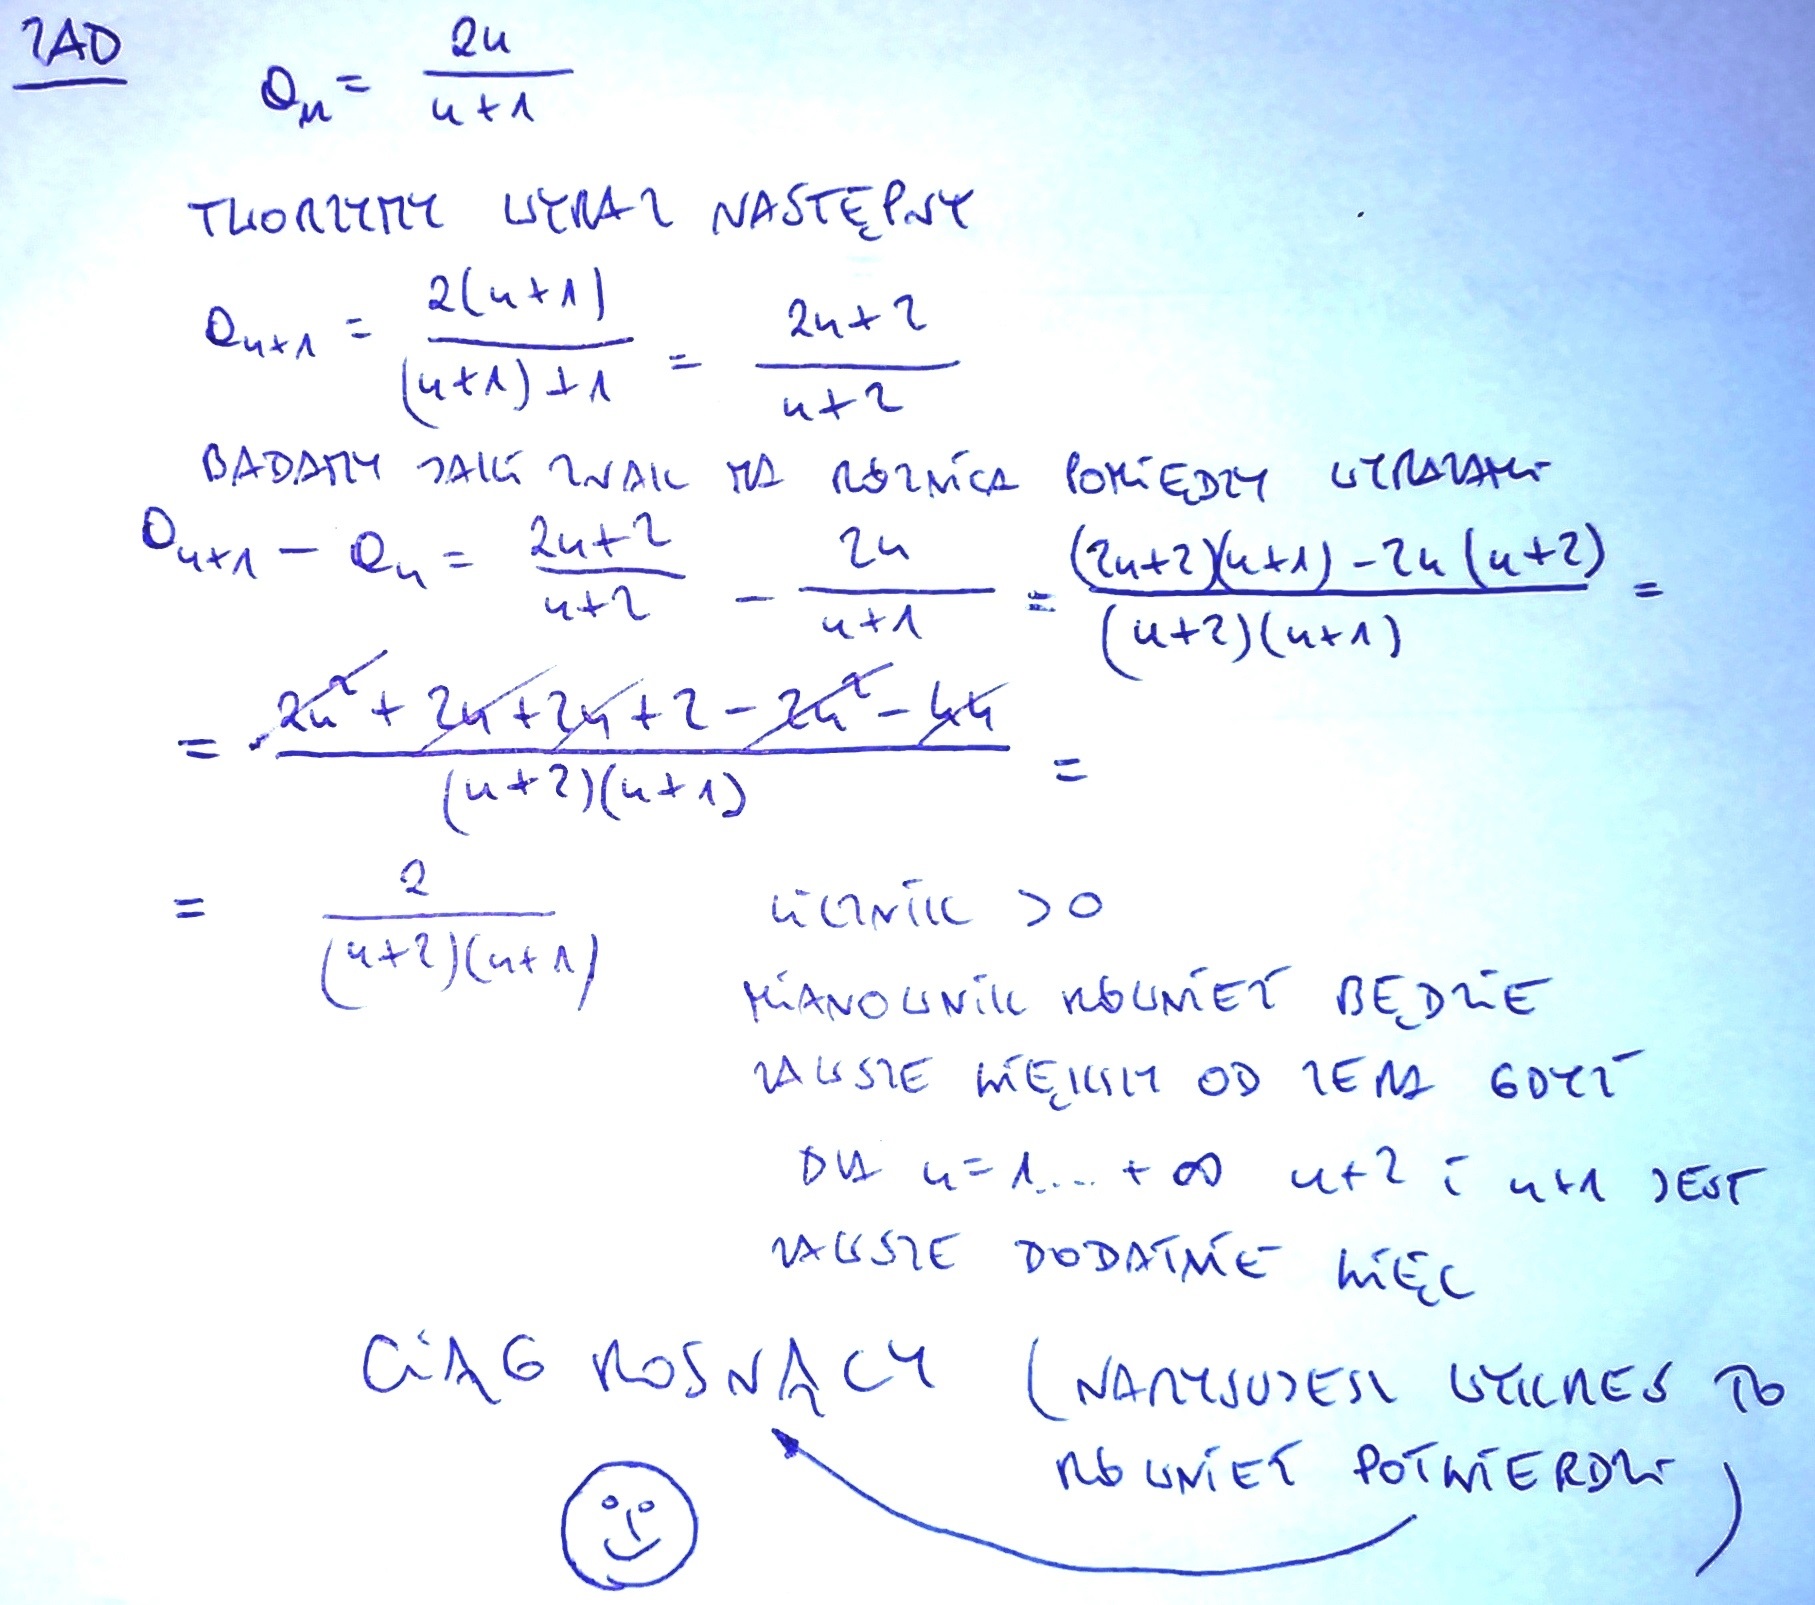 ZAD
aₙ = 2n / n+1
TWORZYMY WYRAZ NASTĘPNY
aₙ₊₁ = 2(n+1) / (n+1)+1 = 2n+2 / n+2
BADAMY JAKI ZNAK MA RÓŻNICA POMIĘDZY WYRAZAMI
aₙ₊₁ − aₙ = 2n+2 / n+2 − 2n / n+1 = (2n+2)(n+1) − 2n(n+2) / (n+2)(n+1) =
= 2n² + 2n + 2n + 2 − 2n² − 4n / (n+2)(n+1) =
= 2 / (n+2)(n+1) LICZNIK > 0
MIANOWNIK RÓWNIEŻ BĘDZIE
ZAWSZE WIĘKSZY OD ZERA GDYŻ
DLA n=1.... +∞ n+2 i n+1 JEST
ZAWSZE DODATNIE WIĘC
CIĄG ROSNĄCY (NARYSUJESZ WYKRES TO
RÓWNIEŻ POTWIERDZI)